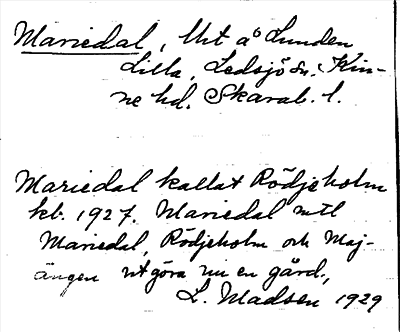 Mariedal, Uts å Lunden
Lilla, Ledsjö sn. Kin-
ne hd. Skarab. l.
Mariedal kallat Rödjeholm
kb. 1927. Mariedal mtl
Mariedal, Rödjeholm och Maj-
ängen utgöra nu en gård.,
L. Madsen 1929